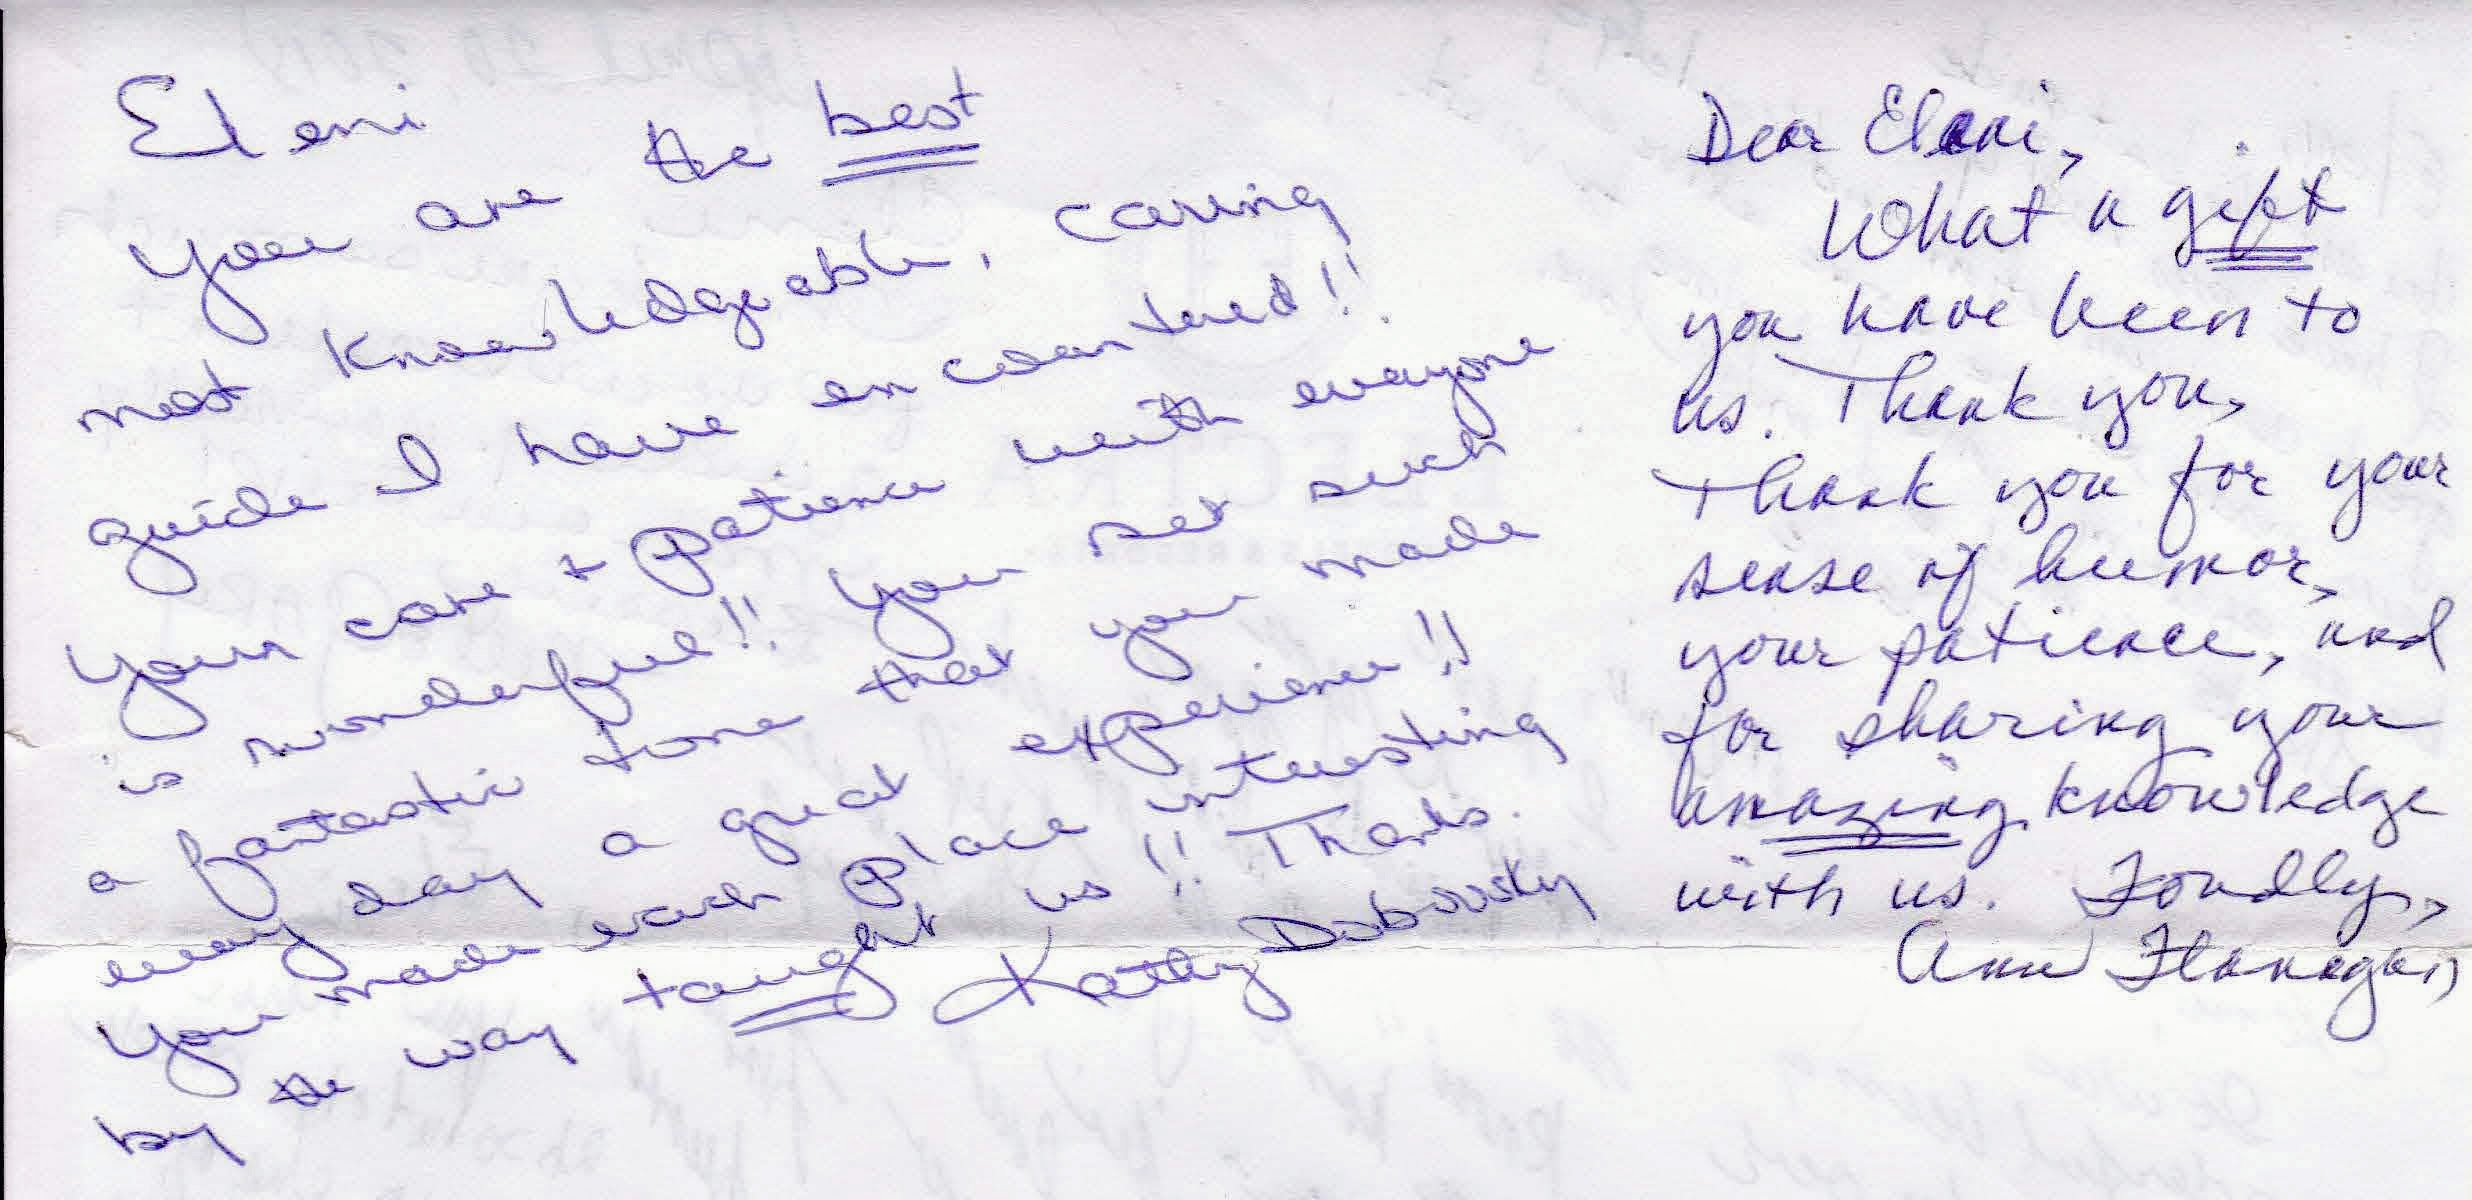 Eleni
You are the best
most knowledgeable, caring
guide I have encountered!!
Your care + patience with everyone
is wonderful!! You set such
a fantastic tone that you made
every day a great experience!!
You made each place interesting
by the way taught us!! Thanks.
Kathy Dobovsky
Dear Eleni,
What a gift
you have been to
us. Thank you,
thank you for your
sense of humor,
your patience, and
for sharing your
amazing knowledge
with us. Fondly,
Ann Flanagan